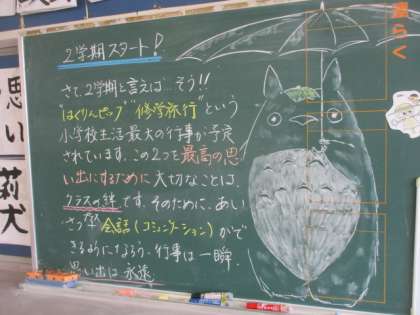 2学期スタート!
さて、2学期と言えば そう!!
"はぐりんピック" "修学旅行"という
小学校生活最大の行事が予定
されています。この2つを最高の思
い出にするために大切なことは、
クラスの絆です。そのために、あい
さつな 会話(コミュニケーション)がで
きるようになろう。行事は一瞬.
思い出は永遠
らく
思い